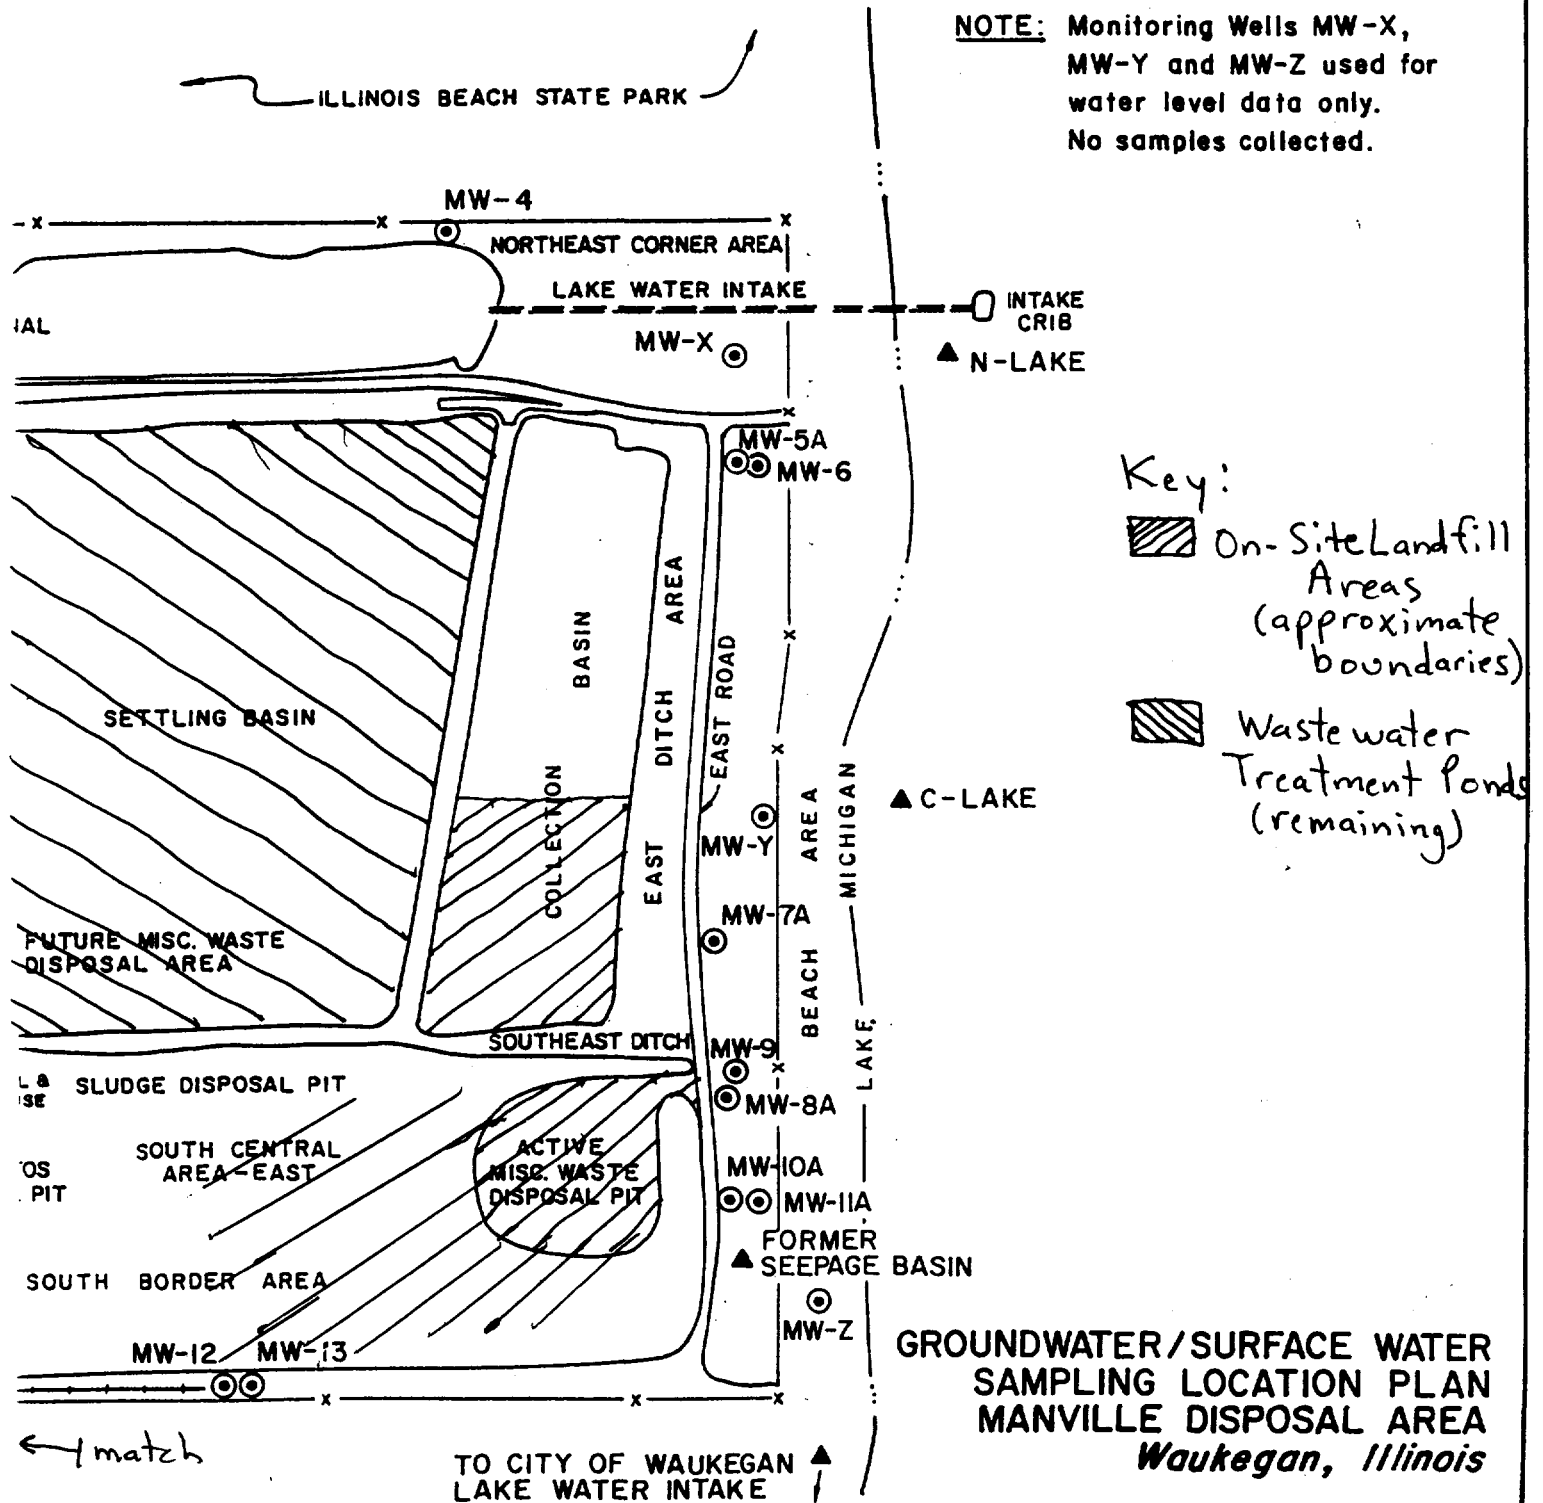 NOTE: Monitoring Wells MW-X,
MW-Y and MW-Z used for
water level data only.
No samples collected.
ILLINOIS BEACH STATE PARK
MW-4
NORTHEAST CORNER AREA
LAKE WATER INTAKE
INTAKE
CRIB
IAL
MW-X
N-LAKE
MW-5A
MW-6
Key:
On-Site Landfill
Areas
(approximate
boundaries)
Wastewater
Treatment Ponds
(remaining)
SETTLING BASIN
COLLECTION BASIN
EAST DITCH AREA
EAST ROAD
BEACH AREA
LAKE MICHIGAN
C-LAKE
MW-Y
MW-7A
FUTURE MISC. WASTE
DISPOSAL AREA
SOUTHEAST DITCH
MW-9
MW-8A
L &
SE
SLUDGE DISPOSAL PIT
SOUTH CENTRAL
AREA-EAST
OS
PIT
ACTIVE
MISC. WASTE
DISPOSAL PIT
MW-10A
MW-11A
FORMER
SEEPAGE BASIN
SOUTH BORDER AREA
MW-Z
MW-12 MW-13
GROUNDWATER/SURFACE WATER
SAMPLING LOCATION PLAN
MANVILLE DISPOSAL AREA
Waukegan, Illinois
match
TO CITY OF WAUKEGAN
LAKE WATER INTAKE